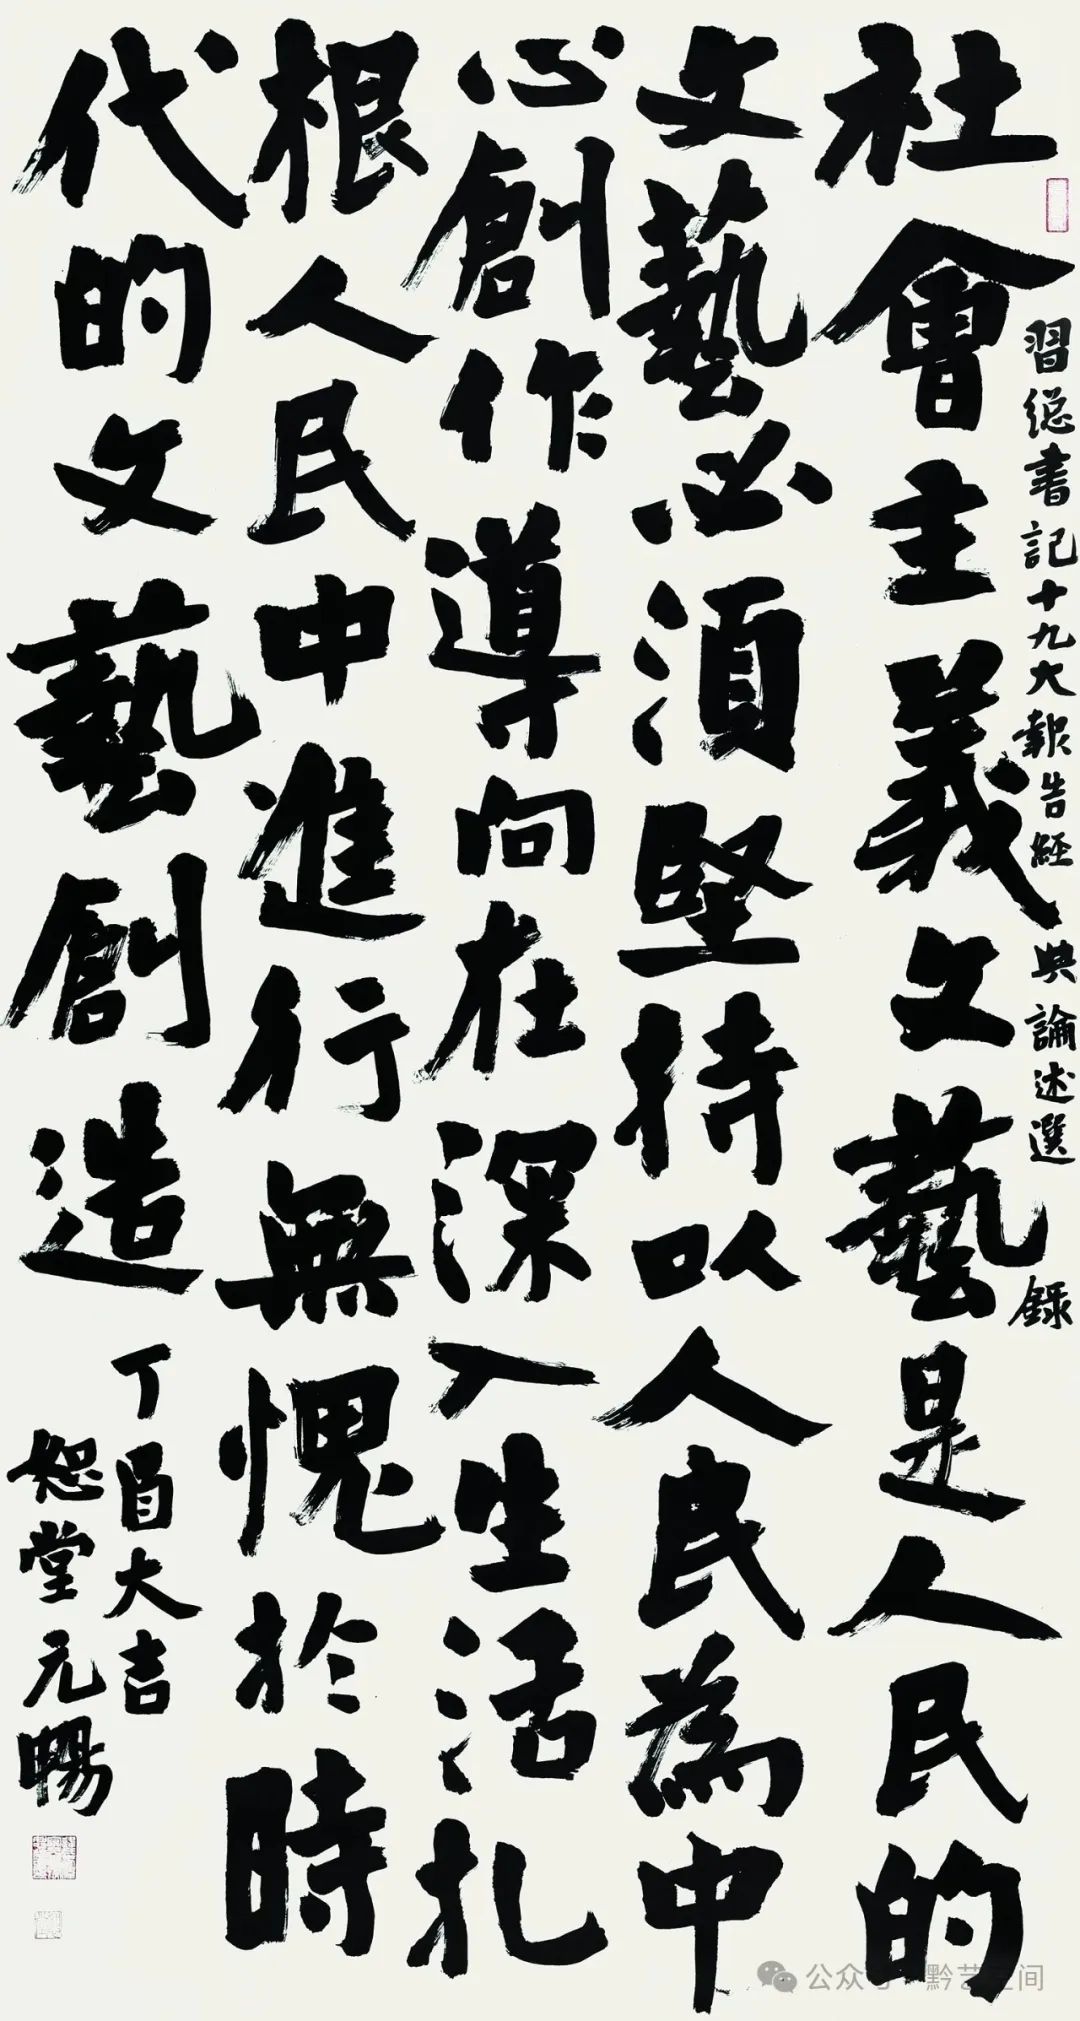 社會主義文藝是人民的
文藝必須堅持以人民為中
心創作導向在深入生活扎
根人民中進行無愧於時
代的文藝創造
習總書記十九大報告經典論述選錄
丁酉大吉
恕堂元暢
公众号 黔艺空间